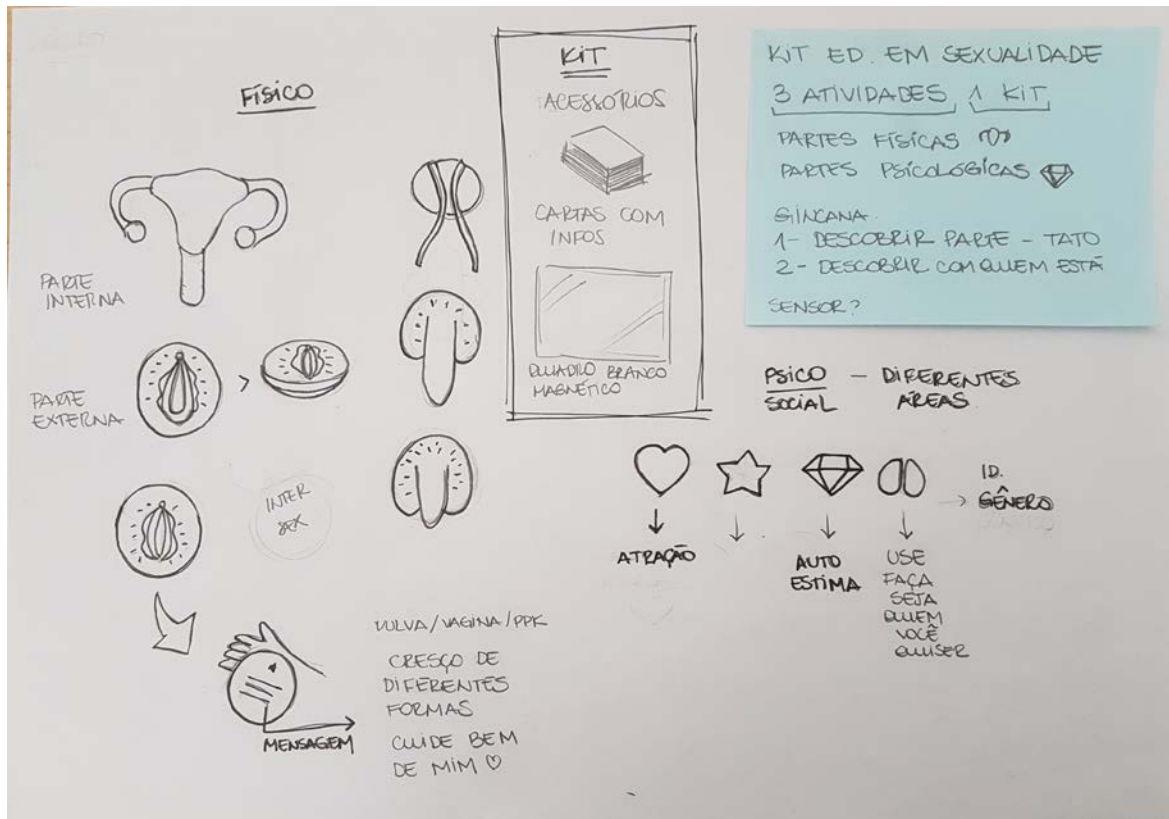 FÍSICO
PARTE
INTERNA
PARTE
EXTERNA
INTER
SEX
MENSAGEM
VULVA/VAGINA/PPK
CRESÇO DE
DIFERENTES
FORMAS
CUIDE BEM
DE MIM ♡
KIT
ACESSÓRIOS
CARTAS COM
INFOS
QUADRO BRANCO
MAGNÉTICO
KIT ED. EM SEXUALIDADE
3 ATIVIDADES, 1 KIT
PARTES FÍSICAS
PARTES PSICOLÓGICAS
GINCANA
1- DESCOBRIR PARTE - TATO
2- DESCOBRIR COM QUEM ESTÁ
SENSOR?
PSICO — DIFERENTES
SOCIAL ÁREAS
ATRAÇÃO
AUTO
ESTIMA
USE
FAÇA
SEJA
QUEM
VOCÊ
QUISER
ID.
GÊNERO